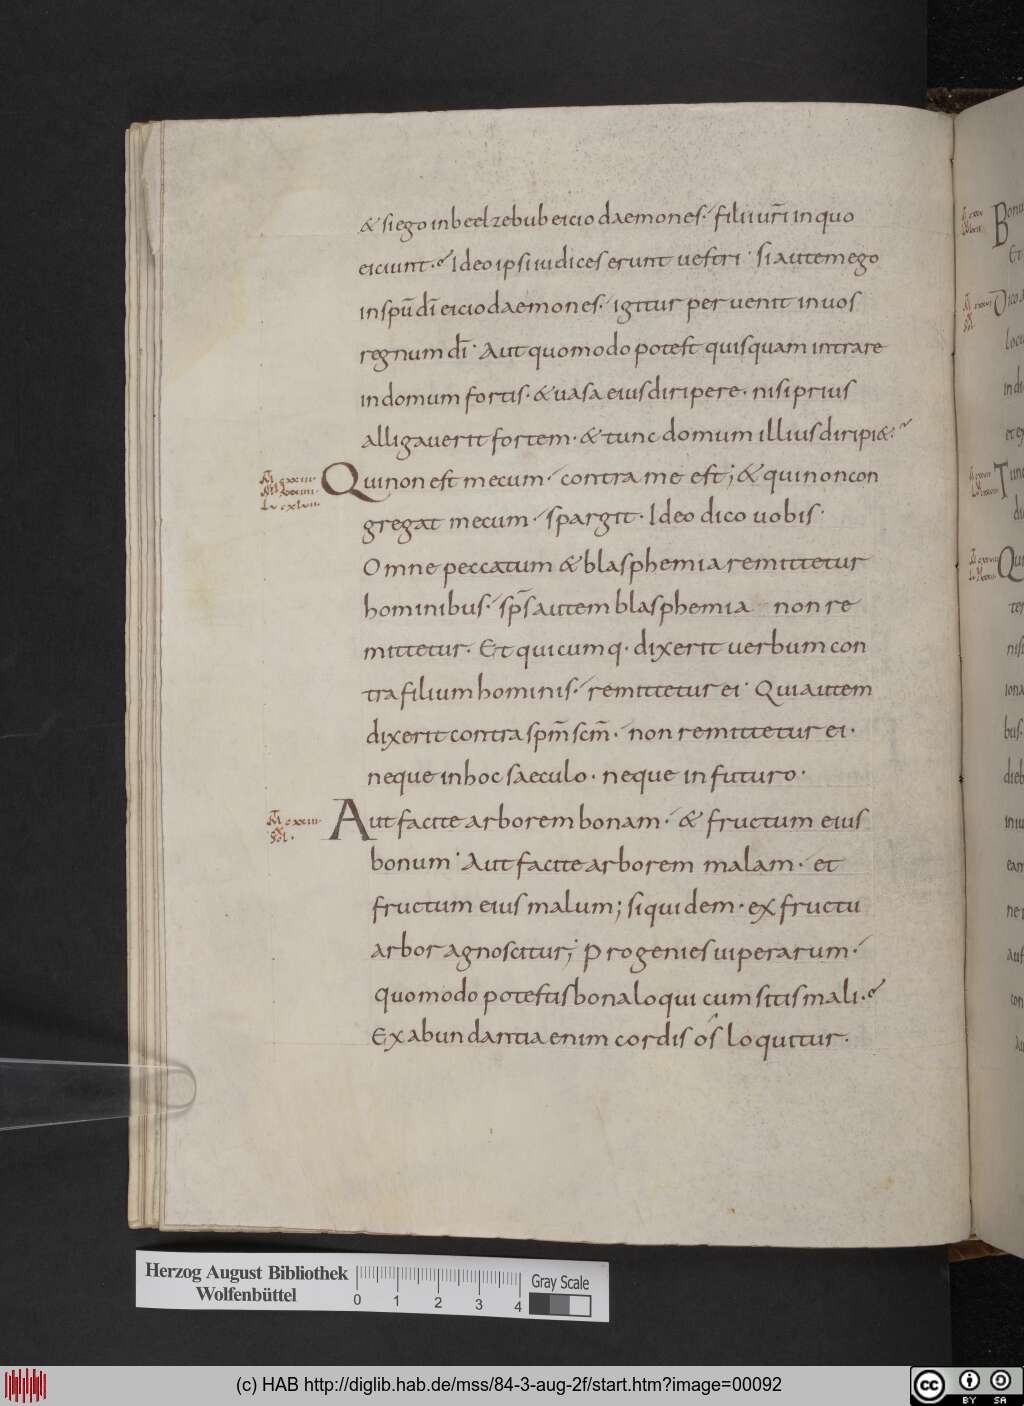 & si ego in beelzebub eicio daemones· filii ur̄i in quo
eiciunt· Ideo ipsi iudices erunt uestri· si autem ego
in spū dī eicio daemones· igitur peruenit in uos
regnum dī· Aut quomodo potest quisquam intrare
in domum fortis· & uasa eius diripere· nisi prius
alligauerit fortem· & tunc domum illius diripi&·
Qui non est mecum· contra me est; & qui non con
gregat mecum· spargit· Ideo dico uobis·
Omne peccatum & blasphemia remittetur
hominibus· sp̄s autem blasphemia non re
mittetur· Et quicumq· dixerit uerbum con
tra filium hominis· remittetur ei· Qui autem
dixerit contra spm̄ scm̄· non remittetur ei·
neque in hoc saeculo· neque in futuro·
Aut facite arborem bonam· & fructum eius
bonum· Aut facite arborem malam· et
fructum eius malum; siquidem· ex fructu
arbor agnoscitur; Progenies uiperarum·
quomodo potestis bona loqui cum sitis mali·
Ex abundantia enim cordis os loquitur·
Herzog August Bibliothek
Wolfenbüttel
0 1 2 3 4
Gray Scale
(c) HAB http://diglib.hab.de/mss/84-3-aug-2f/start.htm?image=00092
cc BY SA